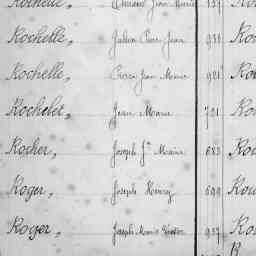 Rochelle, Jean Marie 137
Rochette, Julien Pierre Jean 931
Rochelle, Pierre Jean Marie 921
Rochelet, Jean Marie 721
Rocher, Joseph Jn Marie 683
Roger, Joseph Henry 699
Roger, Joseph Marie 937
R